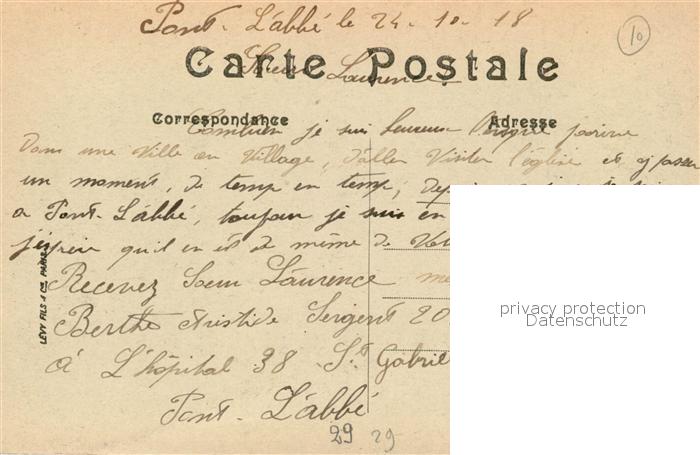 Pont-L'abbé le 24-10-18
10
Carte Postale
Soeur Laurence
Correspondance Adresse
Combien je suis heureux j'arrive
Dans une Ville ou Village, d'aller Visiter l'église et
un moment, de temp en temp,
a Pont-L'abbé, toujour je suis en
qu'il en est de même de
Recevez Soeur Laurence
Berthe Aristide Sergent 20
à L'hôpital 38 St Gabriel
Pont-L'abbé
29 29
LÉVY FILS & Cie PARIS
privacy protection
Datenschutz